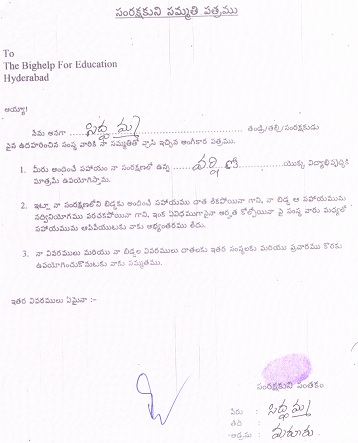 సంరక్షకుని సమ్మతి పత్రము
To
The Bighelp For Education
Hyderabad
అయ్యా!
నేను అనగా సిద్దమ్మ తండ్రి/తల్లి/సంరక్షకుడు
పైన ఉదహరించిన సంస్థ వారికి నా సమ్మతితో వ్రాసి ఇచ్చిన అంగీకార పత్రము.
1. మీరు అందించే సహాయం నా సంరక్షణలో ఉన్న యొక్క విద్యాభివృద్ధికి
మాత్రమే ఉపయోగిస్తాను.
2. ఇట్లా నా సంరక్షణలోని బిడ్డకు అందించే సహాయము దాత లేకపోయినా గాని, నా బిడ్డ ఆ సహాయమును
సద్వినియోగము పరచకపోయినా గాని, ఇంక ఏవిధముగానైనా అర్హత కోల్పోయినా పై సంస్థ వారు మధ్యలో
సహాయమును ఆపివేయుటకు నాకు అభ్యంతరము లేదు.
3. నా వివరములు మరియు నా బిడ్డల వివరములు దాతలకు ఇతర సంస్థలకు మరియు ప్రచారము కొరకు
ఉపయోగించుకొనుటకు నాకు సమ్మతము.
ఇతర వివరములు ఏమైనా :-
సంరక్షకుని సంతకం
పేరు : సిద్దమ్మ
తేది :
అడ్రసు : మరూరు.